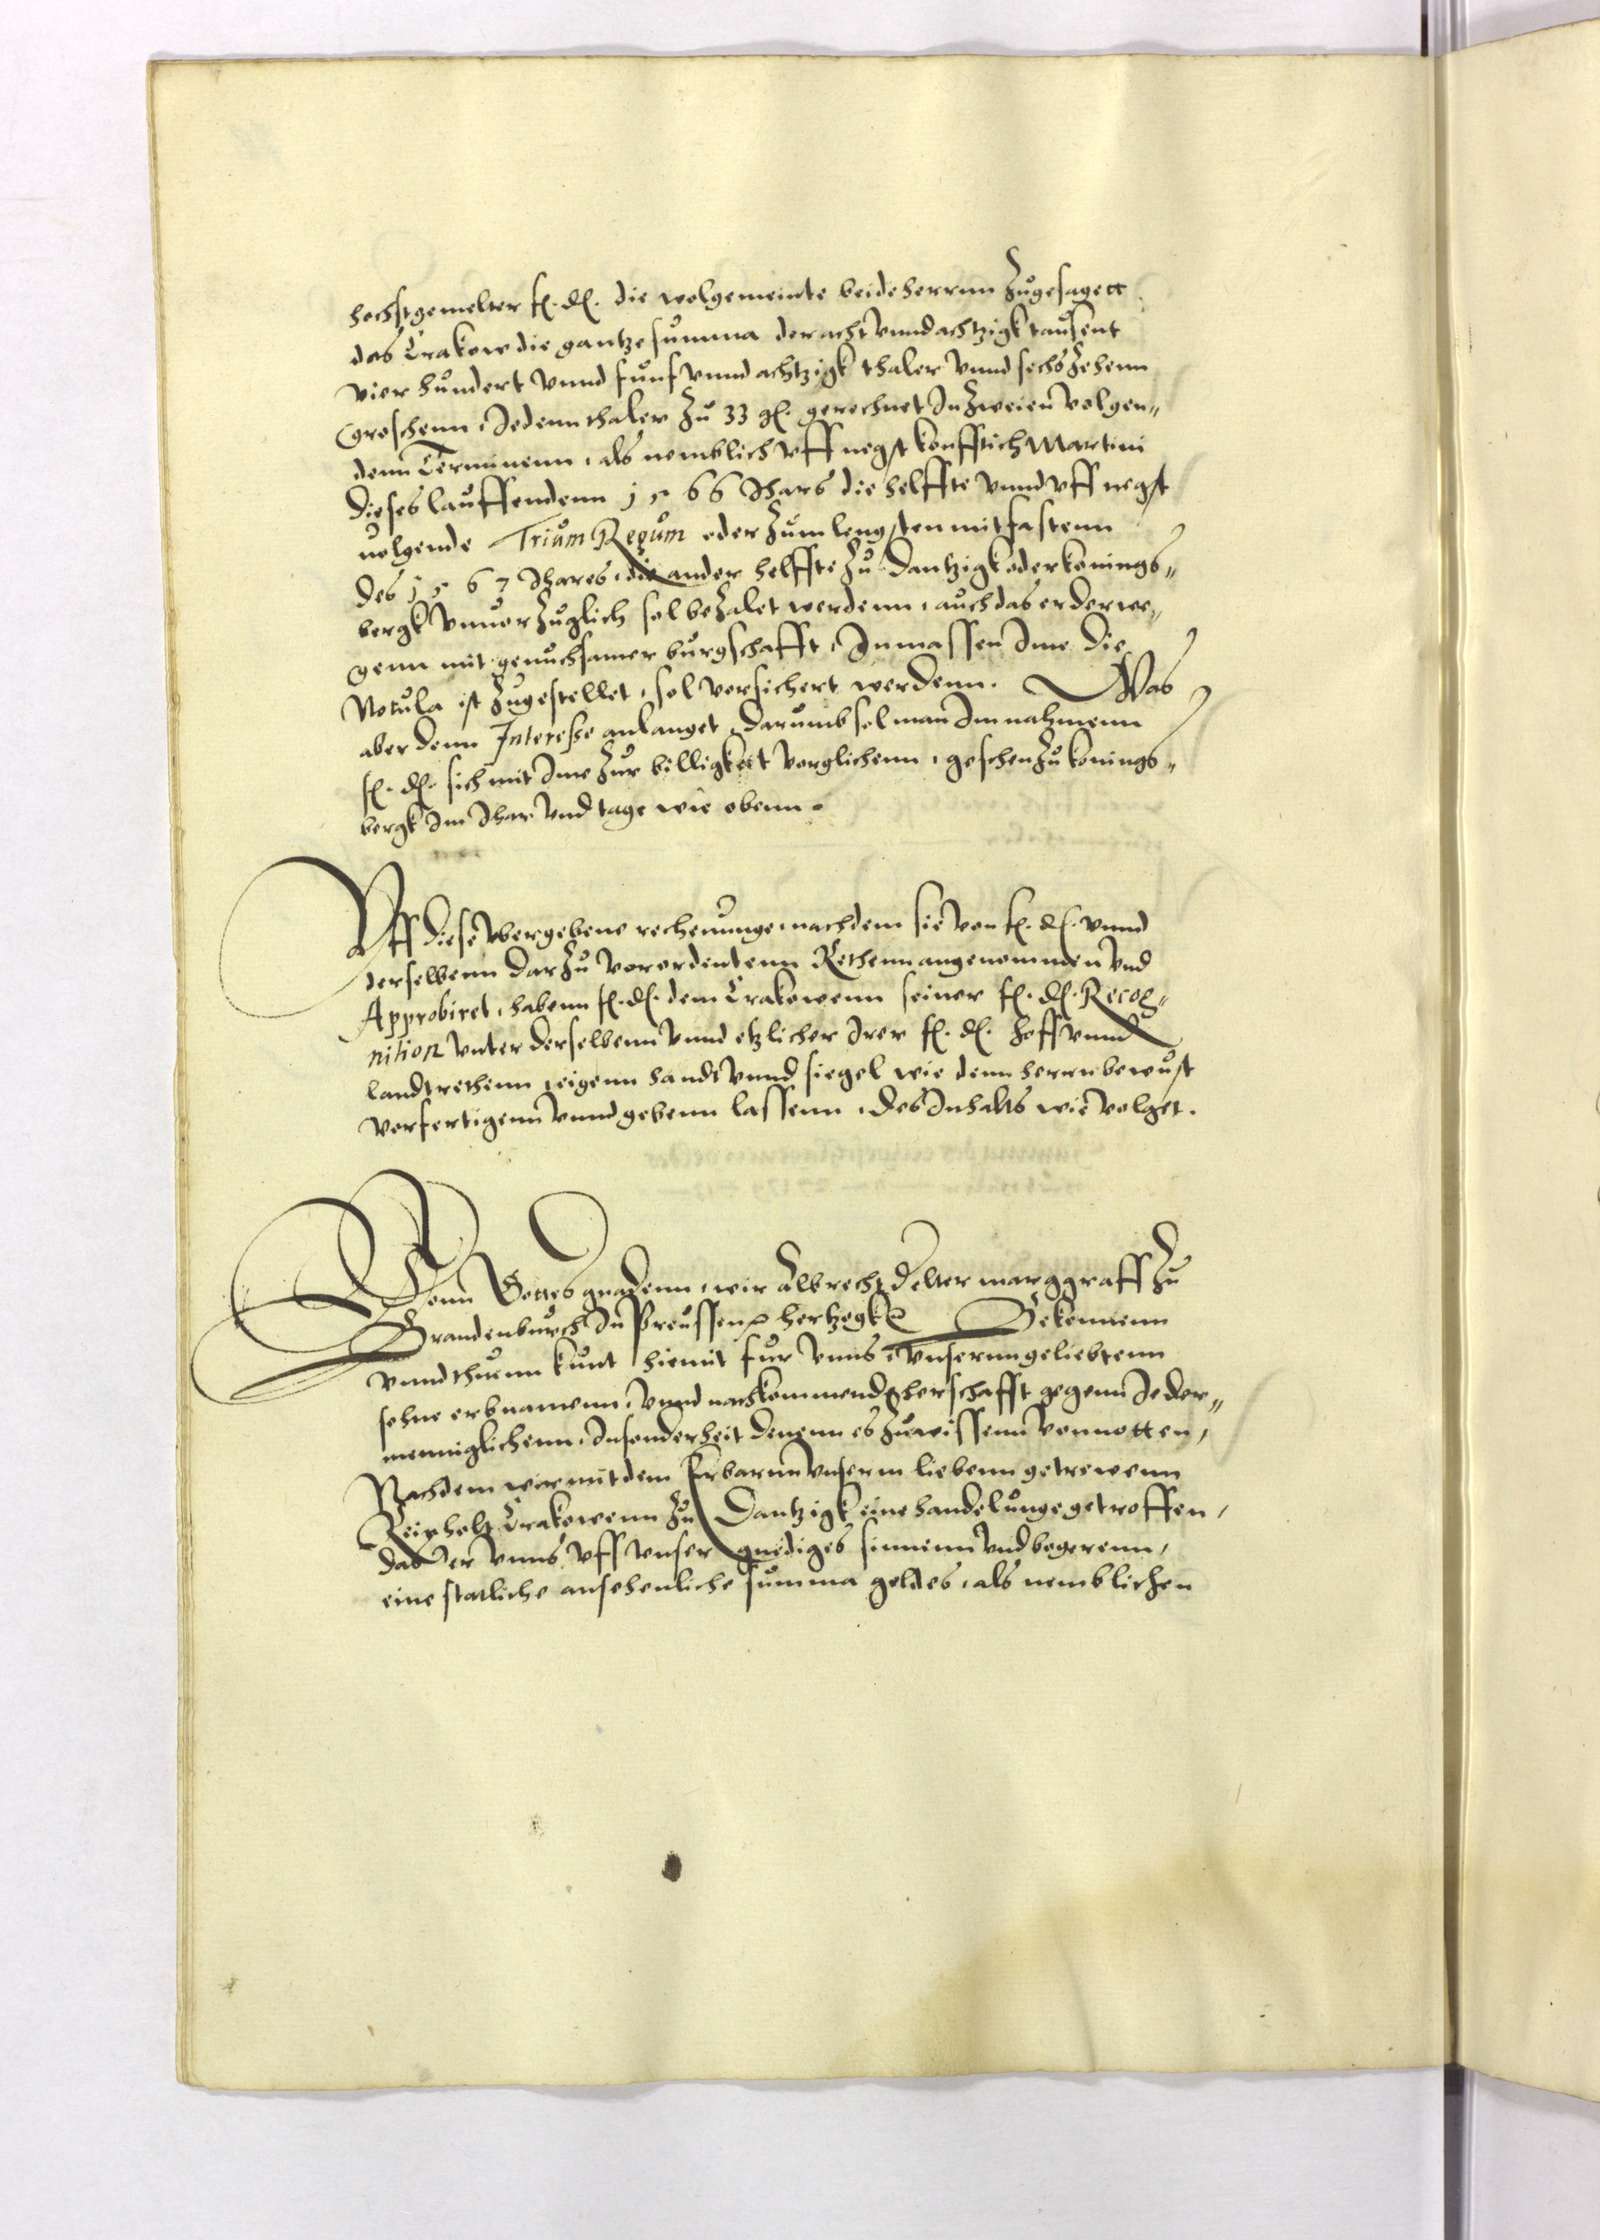 hochstgemelter f. d. die wolgemeinte beide herrnn zugesagett
das Crakow die gantze summa der acht vnnd achtzigk tausent
vier hundert vnnd funf vnnd achtzigk thaler vnnd sechszehenn
groschenn, Jedenn thaler zu 33 g. gerechnet In zweien volgen„
denn Terminenn, als nemblich vff negst konfftich Martini
dieses lauffendenn 1566 Jhars die helffte vnnd vff negst
volgende Trium Regum oder zum lengsten mitfastenn
des 1567 Jhares, die ander helffte zu Dantzigk oder konings„
bergk vnuorzuglich sol bezalet werdenn, auch das er derwe„
genn mit genuchsamer burgschafft, Inmassen Ime die
Notula ist zugestellet, sol vorsichert werdenn. Was
aber denn Interesse anlanget, darumb sol man Im nahmenn
f. d. sich mit Ime zur billigkeit vorglichenn, geschen zu konings„
bergk Im Jhar vnd tage wie obenn.
Vff diese vbergebene rechenunge nachdem sie von f. d. vnnd
derselbenn darzu vorordentenn Rethenn angenommen vnd
Approbiret, habenn f. d. dem Crakowenn seiner f. d. Recog„
nition vnter derselbenn vnnd etzlicher Irer f. d. hoff vnnd
landtrethenn, eigenn handt vnnd siegel wie denn herrn bewust
vorfertigenn vnnd gebenn lassenn, des Inhalts wie volget.
Vonn Gottes gnadenn, wir Albrecht Delter marggraff zu
Brandenburch In Preussen hertzogk Bekennenn
vnnd thuenn kunt hiemit fur vnns, vnserun geliebtenn
sohne erbnamenn, vnnd nachkommende herschafft gegenn Jeder„
menniglichenn, Insonderheit denenn es zuwissenn vonnotten,
Nachdem wir mit dem Erbarnn vnserm liebenn getrewenn
Reinholt Crakowenn zu Dantzigk eine handelunge getroffen,
das er vnns vff vnser gnediges sinnenn vnd begerenn,
eine statliche ansehenliche summa geldes, als nemblichen